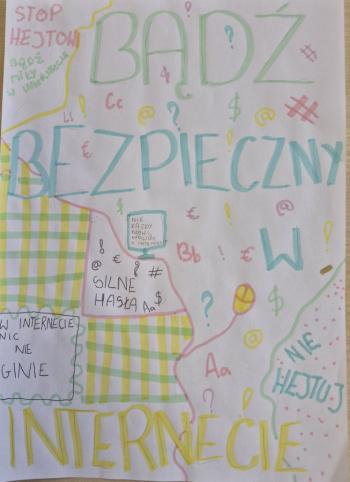 STOP
HEJTOWI
BĄDŹ
MIŁY
W INTERNECIE
BĄDŹ
BEZPIECZNY
W
INTERNECIE
Cc
Ll
Bb
Aa
NIE
KAŻDY
SILNE
HASŁA
Aa
W INTERNECIE
NIC
NIE
GINIE
NIE
HEJTUJ